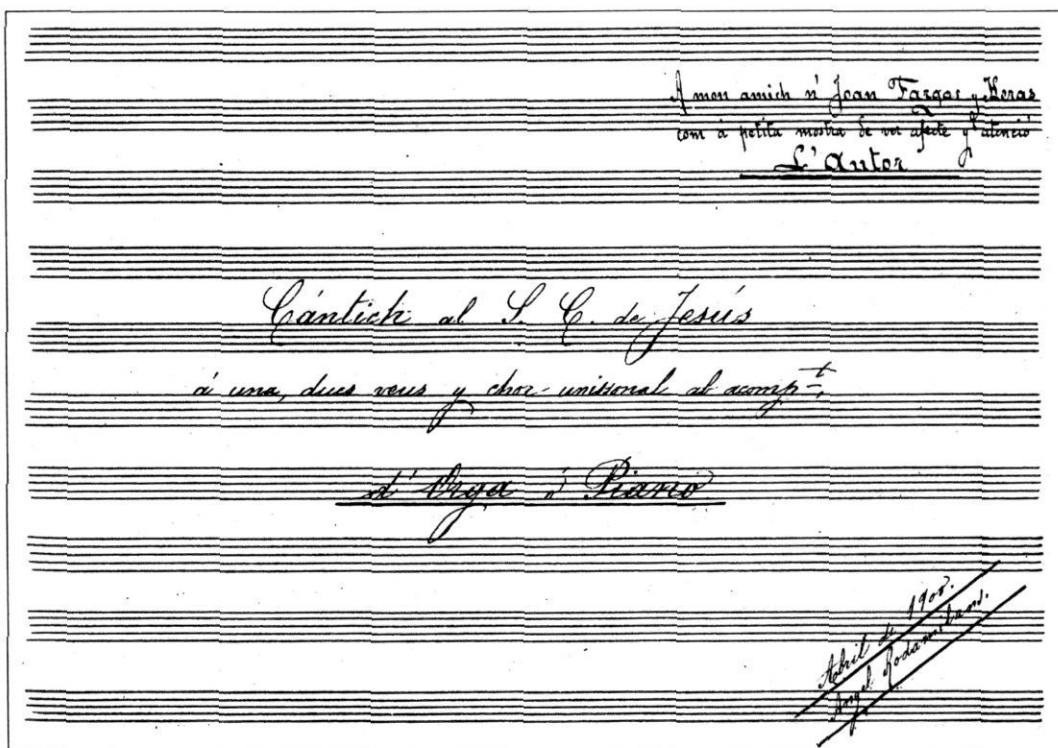 A mon amich n' Joan Fargas y Heras
com à petita mostra de ver afecte y atenció
L' Autor
Cántich al S. C. de Jesús
á una, dues veus y chor-unissonal ab acomp-t.
d' Orga ó Piano
Abril de 1908.
Angel Rodamilans.